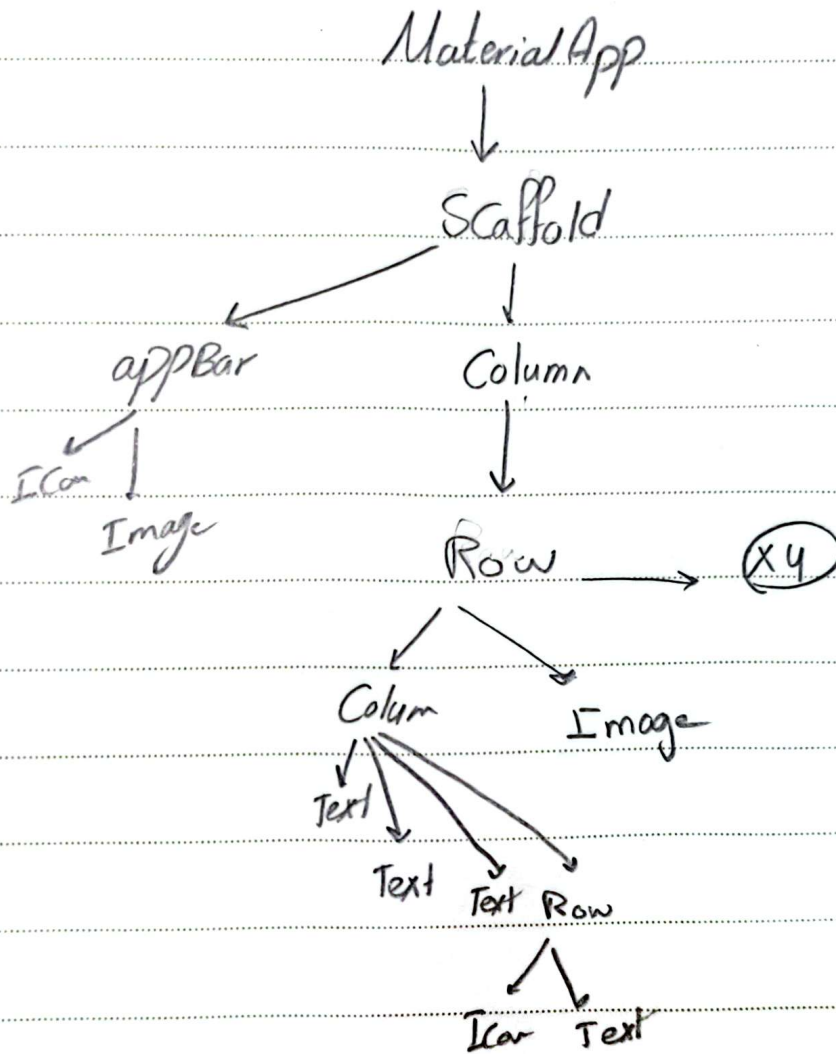 MaterialApp
Scaffold
appBar Column
Icon
Image
Row X4
Colum Image
Text
Text Text Row
Icon Text